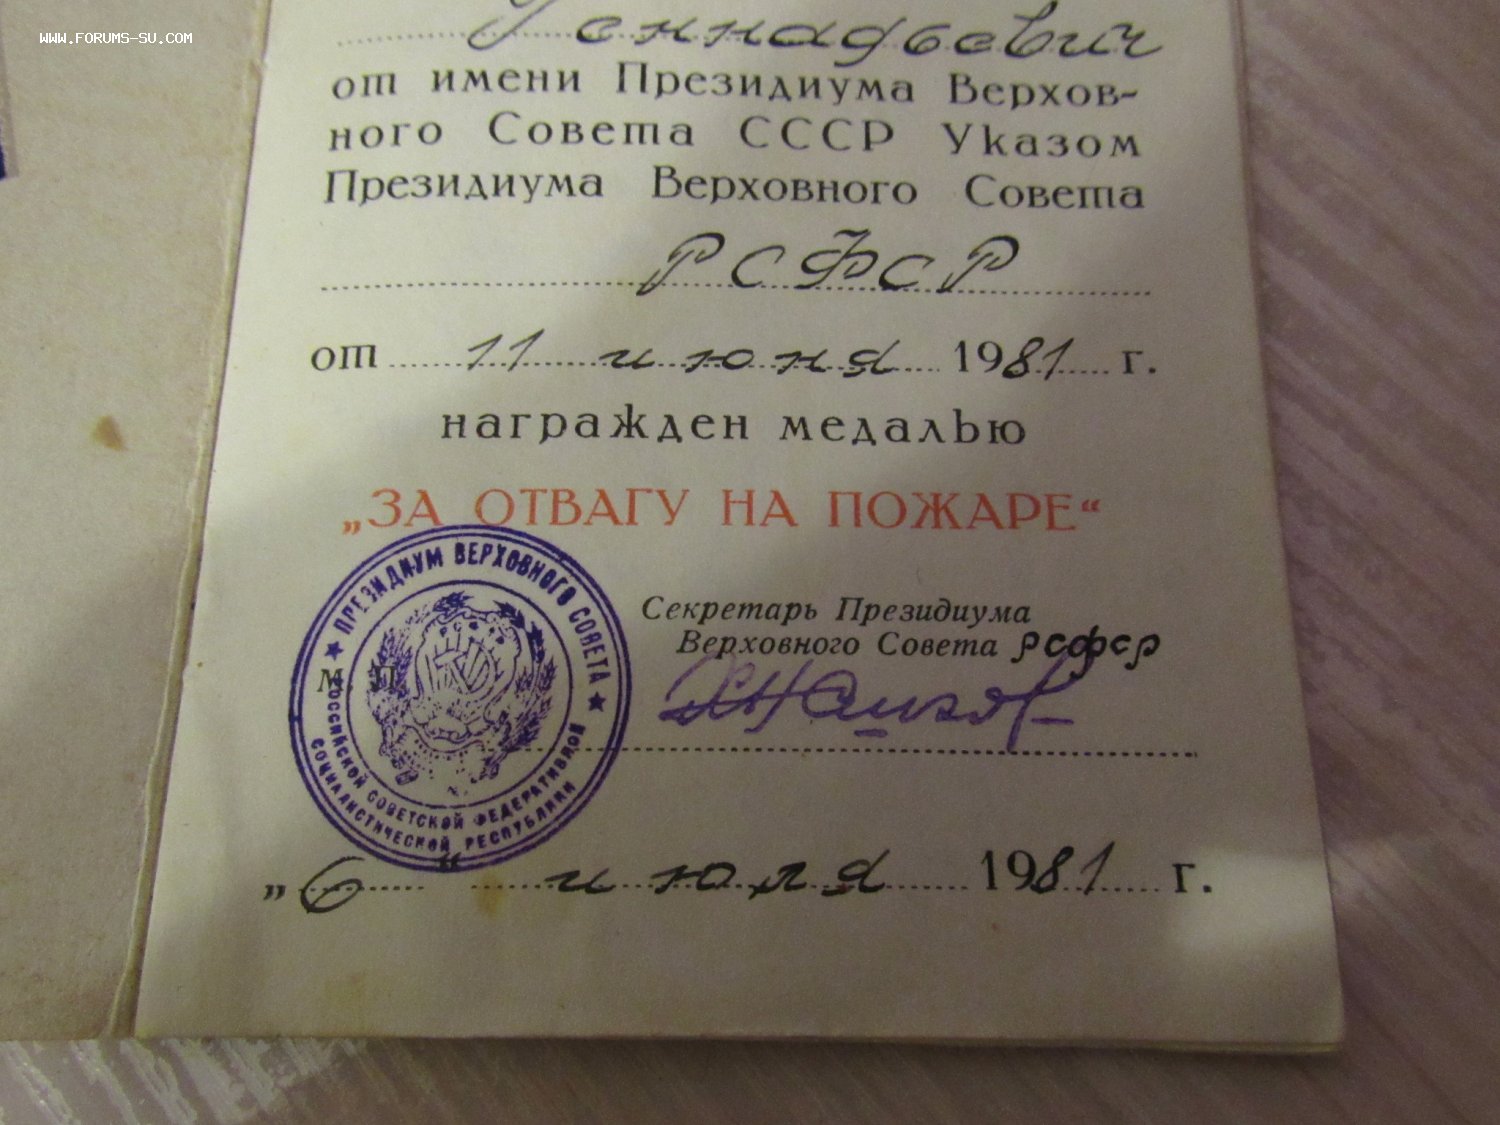 WWW.FORUMS-SU.COM
Геннадьевич
от имени Президиума Верхов-
ного Совета СССР Указом
Президиума Верховного Совета
РСФСР
от 11 июня 1981 г.
награжден медалью
„ЗА ОТВАГУ НА ПОЖАРЕ“
Секретарь Президиума
Верховного Совета РСФСР
М П
★ ПРЕЗИДИУМ ВЕРХОВНОГО СОВЕТА ★
РОССИЙСКОЙ СОВЕТСКОЙ ФЕДЕРАТИВНОЙ
СОЦИАЛИСТИЧЕСКОЙ РЕСПУБЛИКИ
„6“ июля 1981 г.